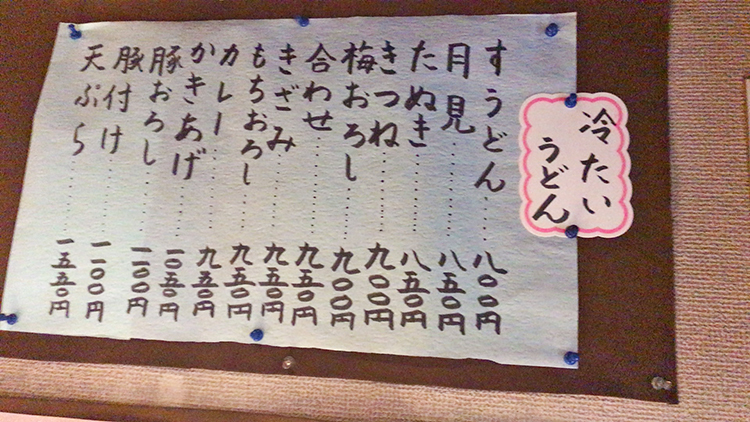 冷たい
うどん
すうどん……八〇〇円
月見……八五〇円
たぬき……八五〇円
きつね……九〇〇円
梅おろし……九〇〇円
合わせ……九五〇円
きざみ……九五〇円
もちおろし……九五〇円
カレー……九五〇円
かきあげ……一〇五〇円
豚おろし……一一〇〇円
豚付け……一一〇〇円
天ぷら……一五五〇円